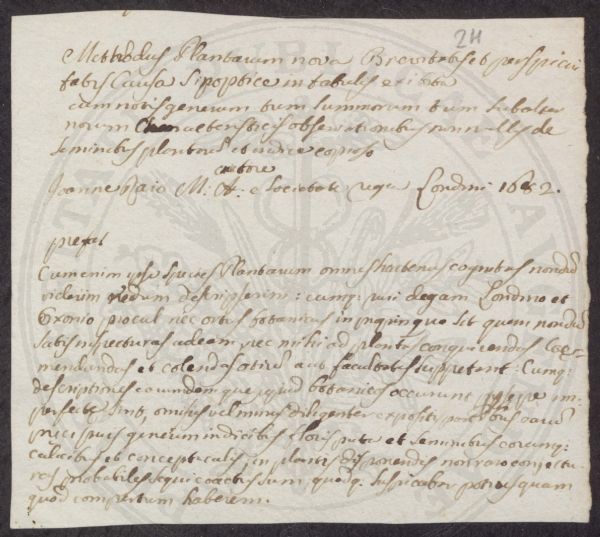 2H
Methodus Plantarum nova Brevitatis et perspicui
tatis Causa Sinoptice in tabulis exibita
cum notis generum tum summorum tum subalter
norum Characteristicis observationibus nonnullis de
seminibus plantarum et indice copioso
autore
Joanne Raio M: A: e Societate regia Londini 1682.
prefat
Cum enim ipse species Plantarum omnes hactenus cognitas nondum
viderim nedum descripserim: cumq: uti degam Londino et
Oxonio procul nec ortus botanicus in propinquo sit quem
satis inspecturus adeam, nec mihi ad plantas conquirendas
et colendas otium aut facultates suppetant: Cumq:
descriptiones earumdem que apud botanicos occurunt sepe im-
perfecte sint, omissis vel minus diligenter expositis
precipuis generum indicibus floris puta et seminibus eorumq:
calicibus et conceptaculis, in plantis disponendis non raro conjectu
ras probabiles sequi coactus sum, quodq: suspicabar potius quam
quod compertum haberem.